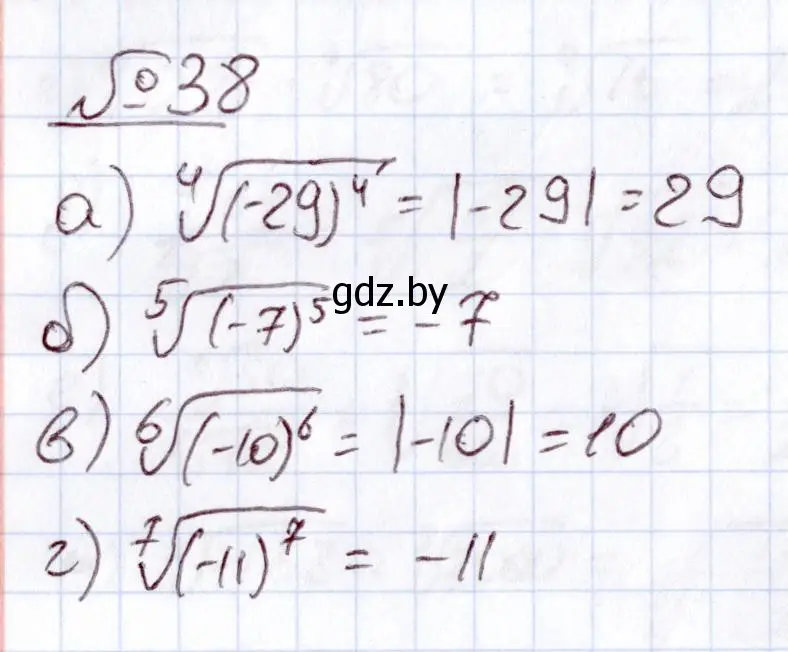 №38
а) ⁴√(-29)⁴ = |-29| = 29
б) ⁵√(-7)⁵ = -7
gdz.by
в) ⁶√(-10)⁶ = |-10| = 10
г) ⁷√(-11)⁷ = -11